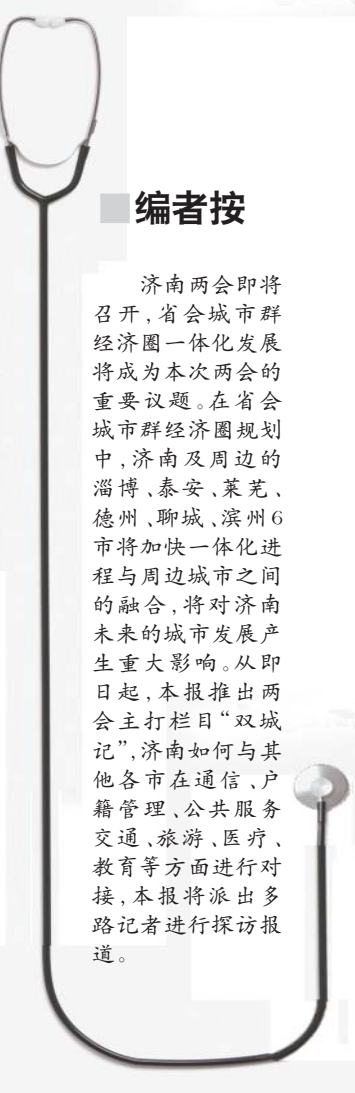 编者按
济南两会即将
召开,省会城市群
经济圈一体化发展
将成为本次两会的
重要议题。在省会
城市群经济圈规划
中,济南及周边的
淄博、泰安、莱芜、
德州、聊城、滨州6
市将加快一体化进
程与周边城市之间
的融合,将对济南
未来的城市发展产
生重大影响。从即
日起,本报推出两
会主打栏目“双城
记”,济南如何与其
他各市在通信、户
籍管理、公共服务
交通、旅游、医疗、
教育等方面进行对
接,本报将派出多
路记者进行探访报
道。